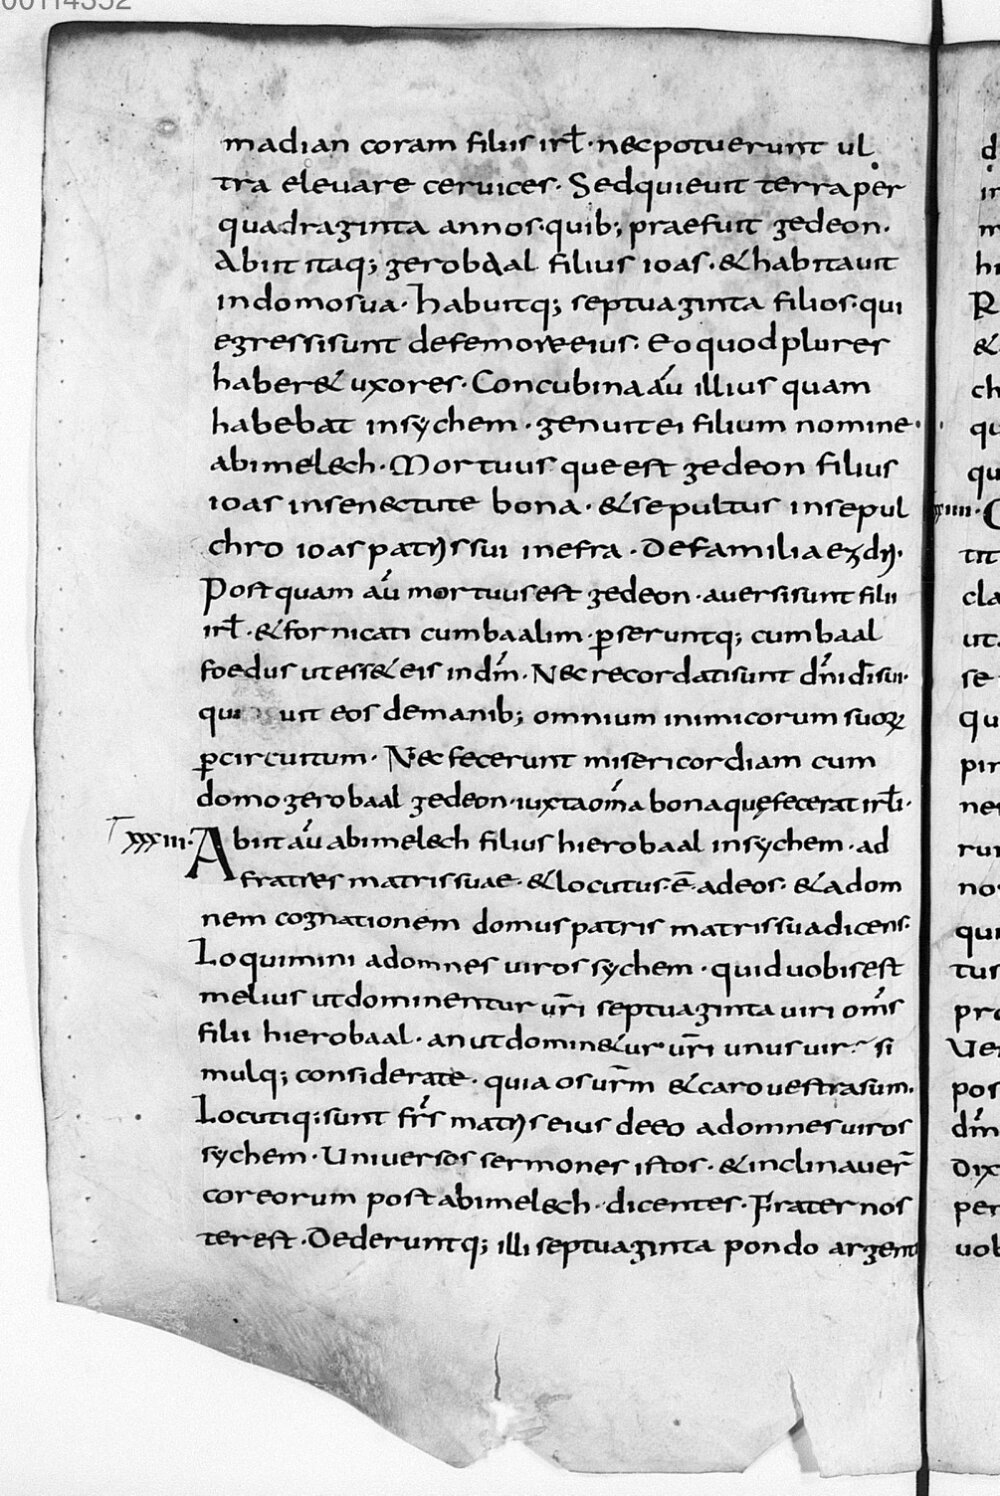 00114352
madian coram filiis irł· nec potuerunt ul
tra elevare cervices· Sed quievit terra per
quadraginta annos· quib; praefuit gedeon·
Abiit itaq; gerobaal filius ioas· & habitavit
in domo sua· habuitq; septuaginta filios· qui
egressi sunt de femore eius· Eo quod plures
haber& uxores· Concubina aū illius quam
habebat in sychem· genuit ei filium nomine·
abimelech· Mortuus que est gedeon filius
ioas in senectute bona· & sepultus in sepul
chro ioas patris sui in efra· de familia ezdri·
Post quam aū mortuus est gedeon· aversi sunt filii
irł· & fornicati cum baalim· p̱seruntq; cum baal
foedus ut ess& eis in dm̄· Nec recordati sunt dn̄i dī sui·
qui uit eos de manib; omnium inimicorum suoꝝ
ꝑ circuitum· Nec fecerunt misericordiam cum
domo gerobaal gedeon· iuxta om̄a bona quę fecerat irłi·
xxxiii· Abiit aū abimelech filius hierobaal in sychem· ad
fratres matris suae· & locutus· ē· ad eos· & ad om
nem cognationem domus patris matris sua dicens·
Loquimini ad omnes viros sychem· quid vobis est
melius ut dominentur vr̄i septuaginta viri om̄s
filii hierobaal· an ut domin&ur vr̄i unus vir· si
mulq; considerate· quia os vr̄m & caro vestra sum·
Locutiq; sunt fr̄s matris eius de eo ad omnes viros
sychem· Universos sermones istos· & inclinaver̄
cor eorum post abimelech· dicentes· Frater nos
ter est· Dederuntq; illi septuaginta pondo argenti